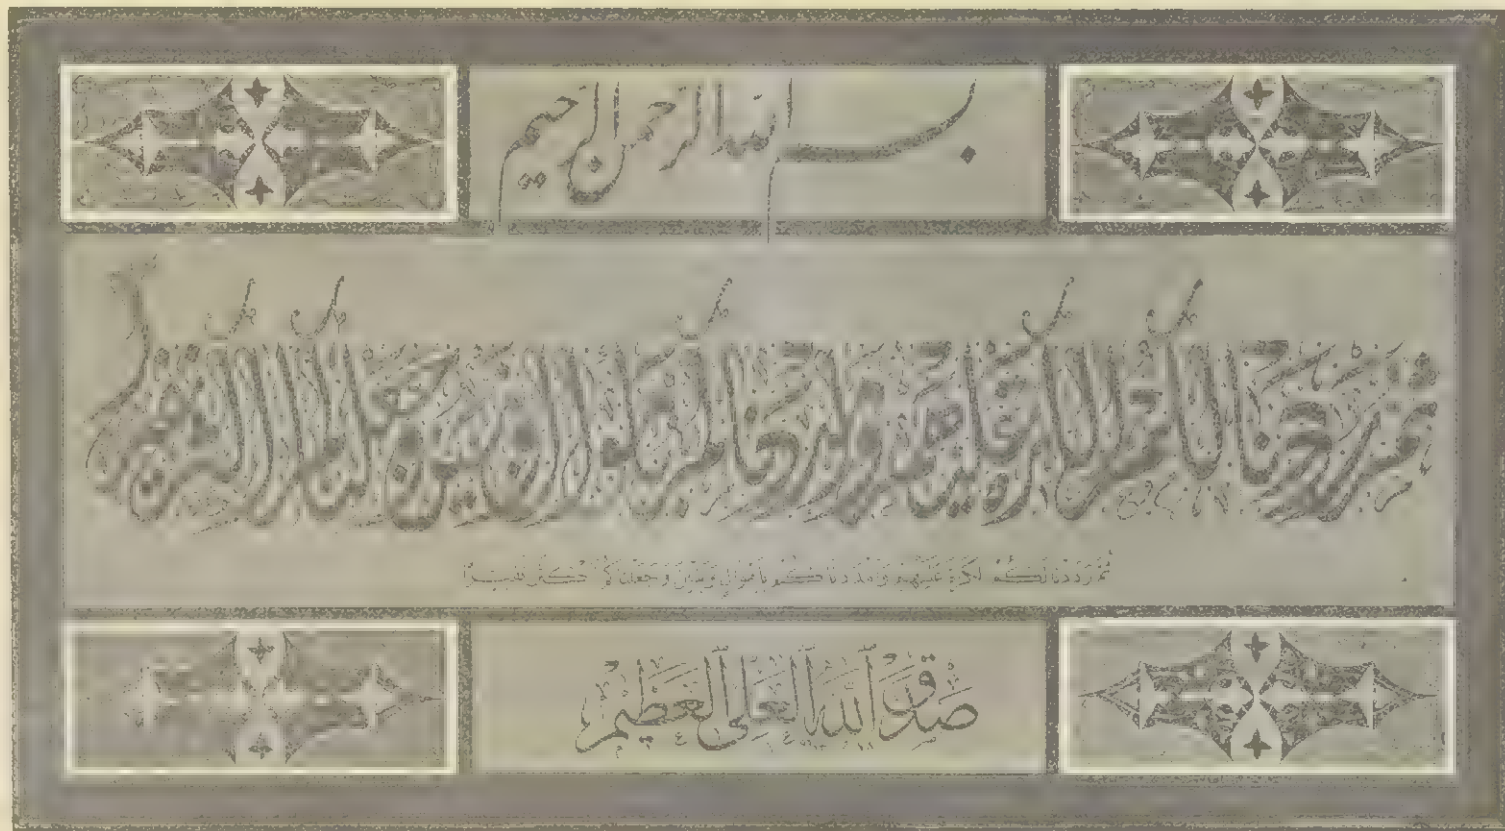 بسم الله الرحمن الرحيم
ثم رددنا لكم الكرة عليهم وأمددناكم بأموال وبنين وجعلناكم أكثر نفيرا
ثُمَّ رَدَدْنَا لَكُمُ الْكَرَّةَ عَلَيْهِمْ وَأَمْدَدْنَاكُمْ بِأَمْوَالٍ وَبَنِينَ وَجَعَلْنَاكُمْ أَكْثَرَ نَفِيرًا
صَدَقَ اللهُ العَلِيُّ العَظِيمُ